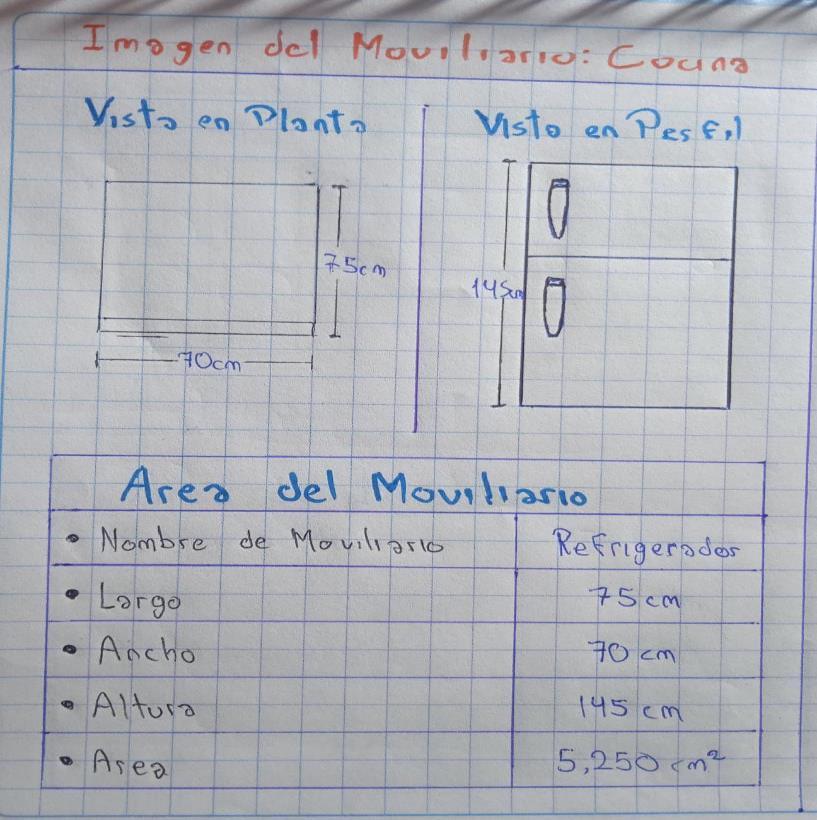 Imagen del Moviliario: Cocina
Vista en Planta
Vista en Perfil
75cm
145cm
70cm
Area del Moviliario
• Nombre de Moviliario Refrigerador
• Largo 75 cm
• Ancho 70 cm
• Altura 145 cm
• Area 5,250 cm²